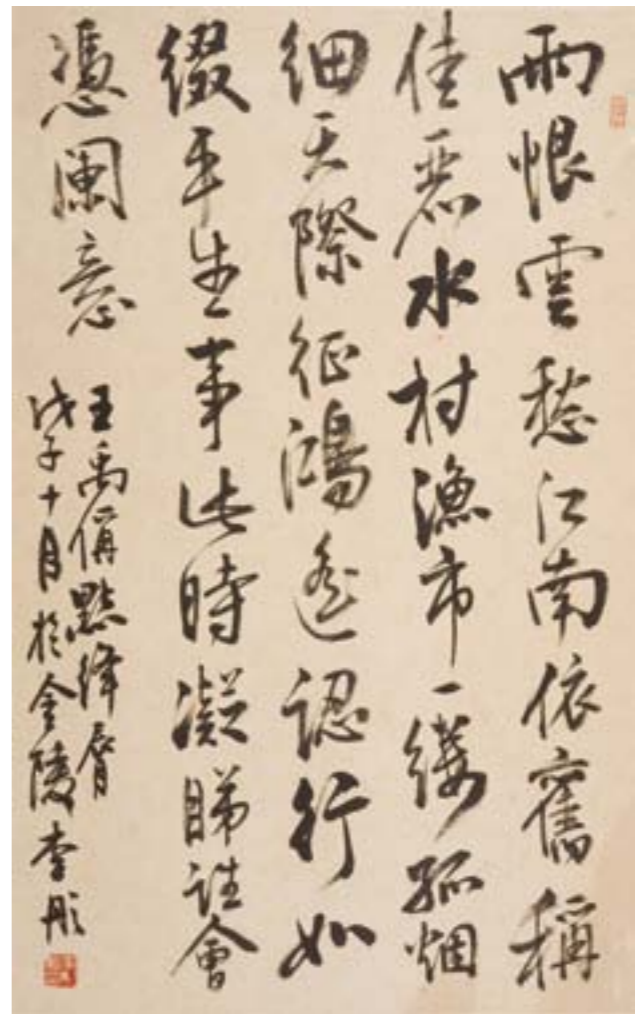 雨恨雲愁江南依舊稱
佳麗水村漁市一縷孤烟
細天際征鴻遙認行如
綴平生事此時凝睇誰會
憑闌意
王禹偁點絳脣
戊子十月於金陵李彤